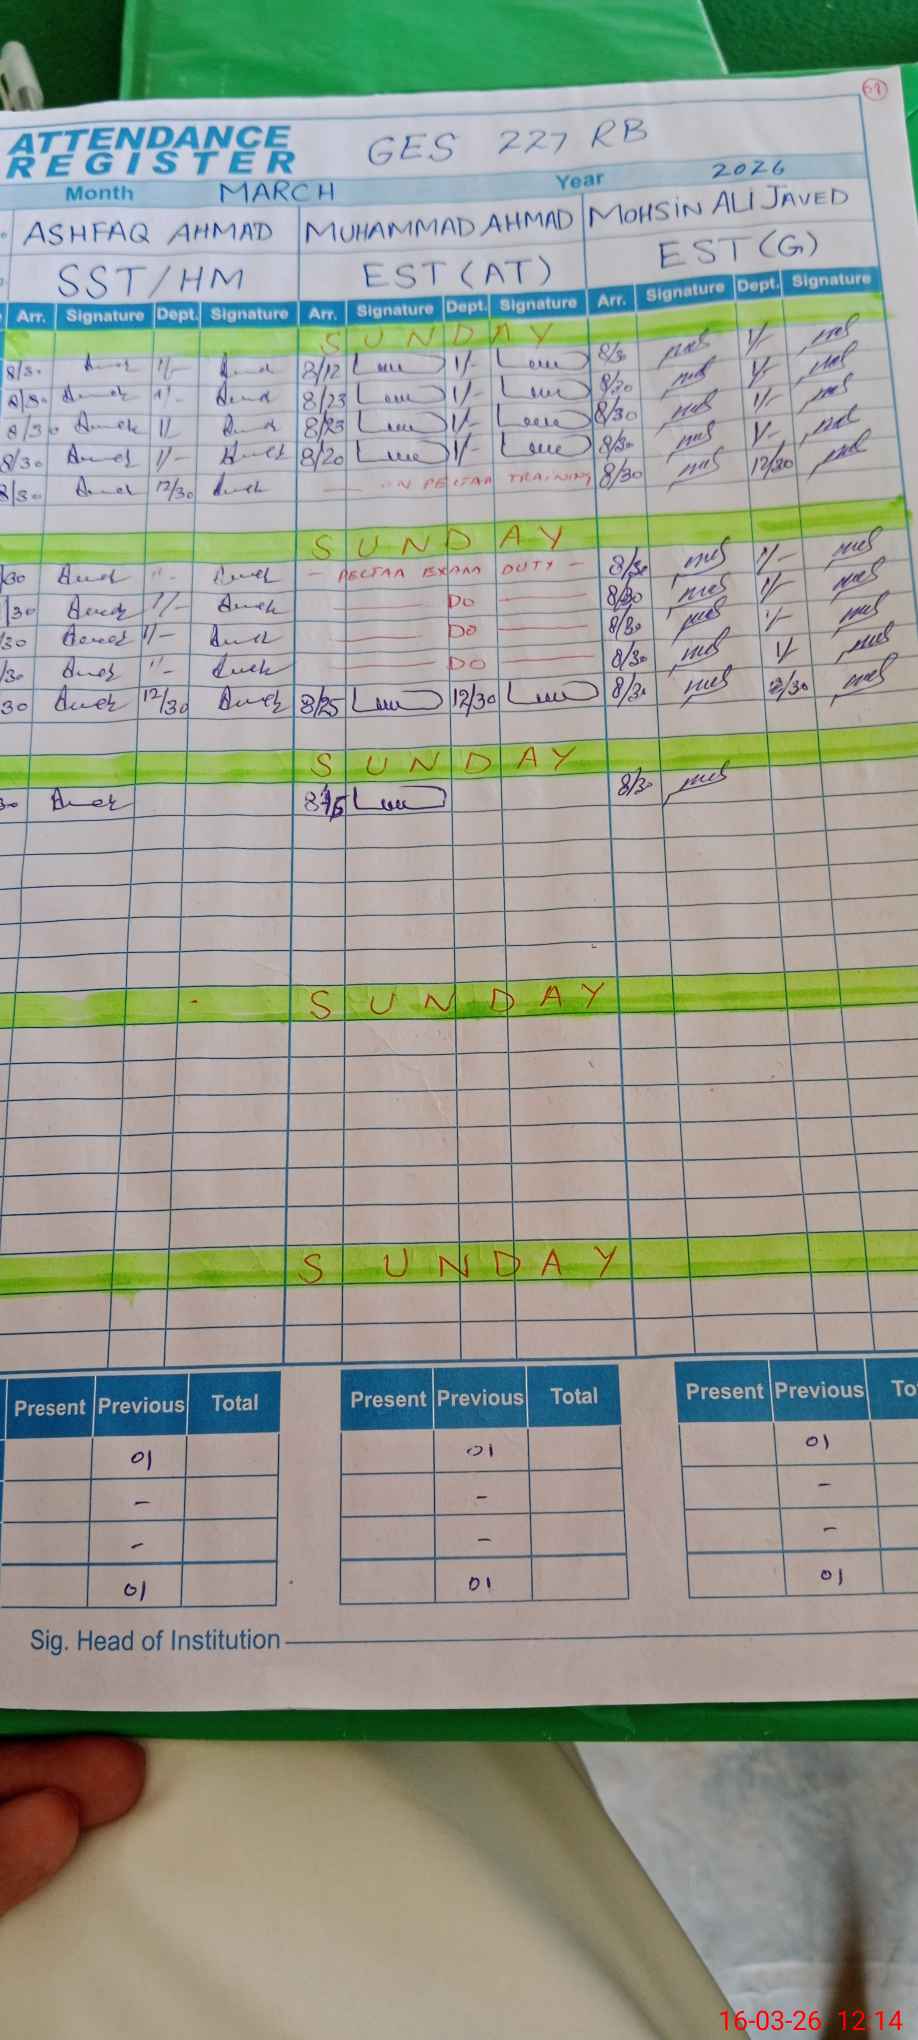 68
ATTENDANCE REGISTER GES 227 RB
Month MARCH Year 2026
ASHFAQ AHMAD MUHAMMAD AHMAD MOHSIN ALI JAVED
SST/HM EST (AT) EST (G)
Arr. Signature Dept. Signature Arr. Signature Dept. Signature Arr. Signature Dept. Signature
SUNDAY
8/30 1/- 8/12 1/- 8/30 1/-
8/30 1/- 8/23 1/- 8/30 1/-
8/30 1/- 8/23 1/- 8/30 1/-
8/30 1/- 8/20 1/- 8/30 1/-
8/30 12/30 ON PECTAA TRAINING 8/30 12/30
SUNDAY
/30 - PECTAA EXAM DUTY - 8/30 1/-
/30 1/- DO 8/30 1/-
/30 1/- DO 8/30 1/-
/30 DO 8/30 1/
30 12/30 8/25 12/30 8/30 12/30
SUNDAY
30 8/30
SUNDAY
SUNDAY
Present Previous Total Present Previous Total Present Previous To
01 01 01
- - -
- - -
01 01 01
Sig. Head of Institution
16-03-26 12:14